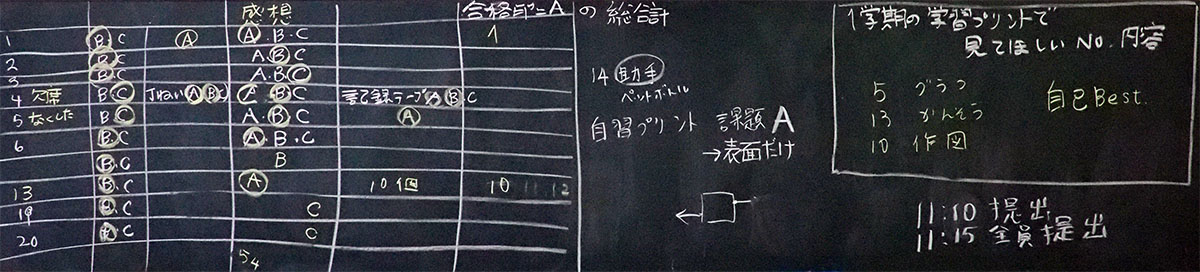 感想 合格印=Aの総計
1 B.C A A.B.C 1
2 B.C A.B.C
3 B.C A.B.C
4 欠席 B.C A B C B.C B.C
5 なくした B.C A.B.C A
6 B.C A.B.C
B.C B
13 B.C A 10個 10 11 12
19 B.C C
20 B.C C
54
14 助手
ペットボトル
自習プリント 課題A
→表面だけ
1学期の学習プリントで
見てほしいNo.内容
5 グラフ
13 かんそう
10 作図
自己Best.
11:10 提出
11:15 全員提出